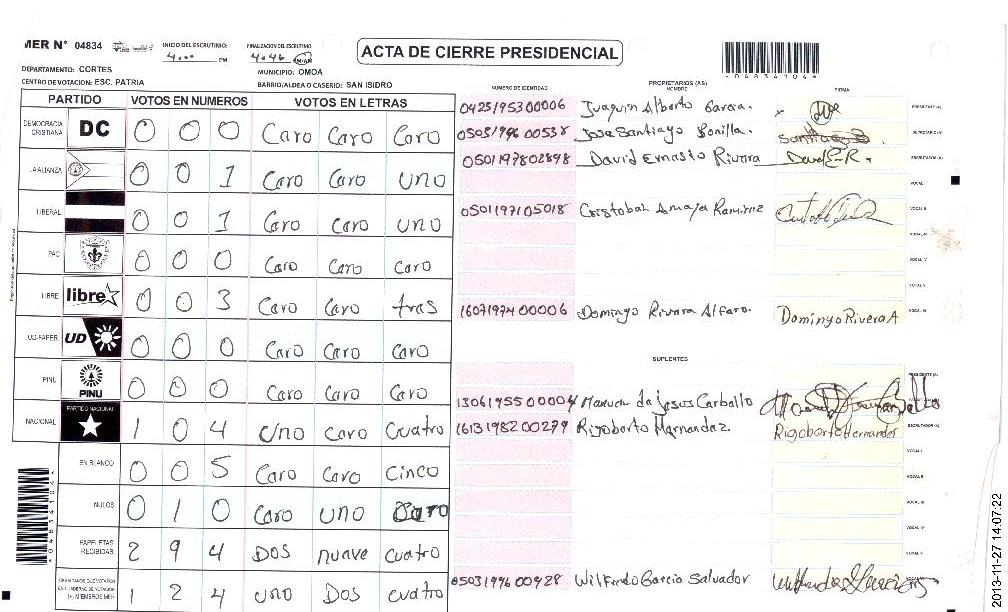 MER N° 04834
INICIO DEL ESCRUTINIO:
4:00 PM
FINALIZACION DEL ESCRUTINIO
4:46
ACTA DE CIERRE PRESIDENCIAL
*04834104*
DEPARTAMENTO: CORTES
MUNICIPIO: OMOA
CENTRO DE VOTACION: ESC. PATRIA
BARRIO/ALDEA O CASERIO: SAN ISIDRO
PARTIDO VOTOS EN NUMEROS VOTOS EN LETRAS
DEMOCRACIA CRISTIANA DC 0 0 0 Caro Caro Caro
LA ALIANZA 0 0 1 Caro Caro uno
LIBERAL 0 0 1 Caro Caro uno
PAC 0 0 0 Caro Caro Caro
LIBRE libre 0 0 3 Caro Caro tras
UD-FAPER UD 0 0 0 Caro Caro Caro
PINU PINU 0 0 0 Caro Caro Caro
NACIONAL PARTIDO NACIONAL 1 0 4 Uno Caro Cuatro
EN BLANCO 0 0 5 Caro Caro Cinco
NULOS 0 1 0 Caro uno Caro
PAPELETAS RECIBIDAS 2 9 4 DOS nuave cuatro
CIUDADANOS QUE VOTARON EN CUADERNO DE VOTACION (+) MIEMBROS MER 1 2 4 uno Dos cuatro
NUMERO DE IDENTIDAD
PROPIETARIOS (AS)
NOMBRE
FIRMA
0425195300006 Juaquin Alberto Garcia. PRESIDENTE(A)
Jose Santiago Bonilla. Santiago B SECRETARIO(A)
0501197802898 David Ernasto Rivara David E-R. ESCRUTADOR(A)
VOCAL I
0501197105018 Cristobal Amaya Ramiraz VOCAL II
VOCAL III
VOCAL IV
VOCAL V
1607197400006 Domingo Rivara Alfaro. Domingo Rivera A
SUPLENTES
PRESIDENTE(A)
1306195500004 Manuel da Jesus Carballo
1613198200279 Rigoberto Harnandaz. Rigoberto Hernandez ESCRUTADOR(A)
VOCAL I
VOCAL II
VOCAL III
VOCAL IV
VOCAL V
0503199600928 Wilfredo Garcia Salvador
*04834104*
2013-11-27 14:07:22